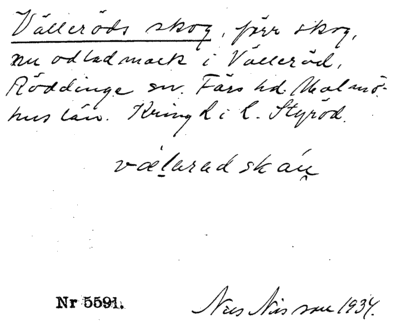 Välleröds skog, förr skog,
nu odlad mark i Välleröd,
Röddinge sn. Färs hd. Malmö-
hus län. Kring l. i L. Styröd.
vælarad skán
Nr 5591.
Nils Nilsson 1934.